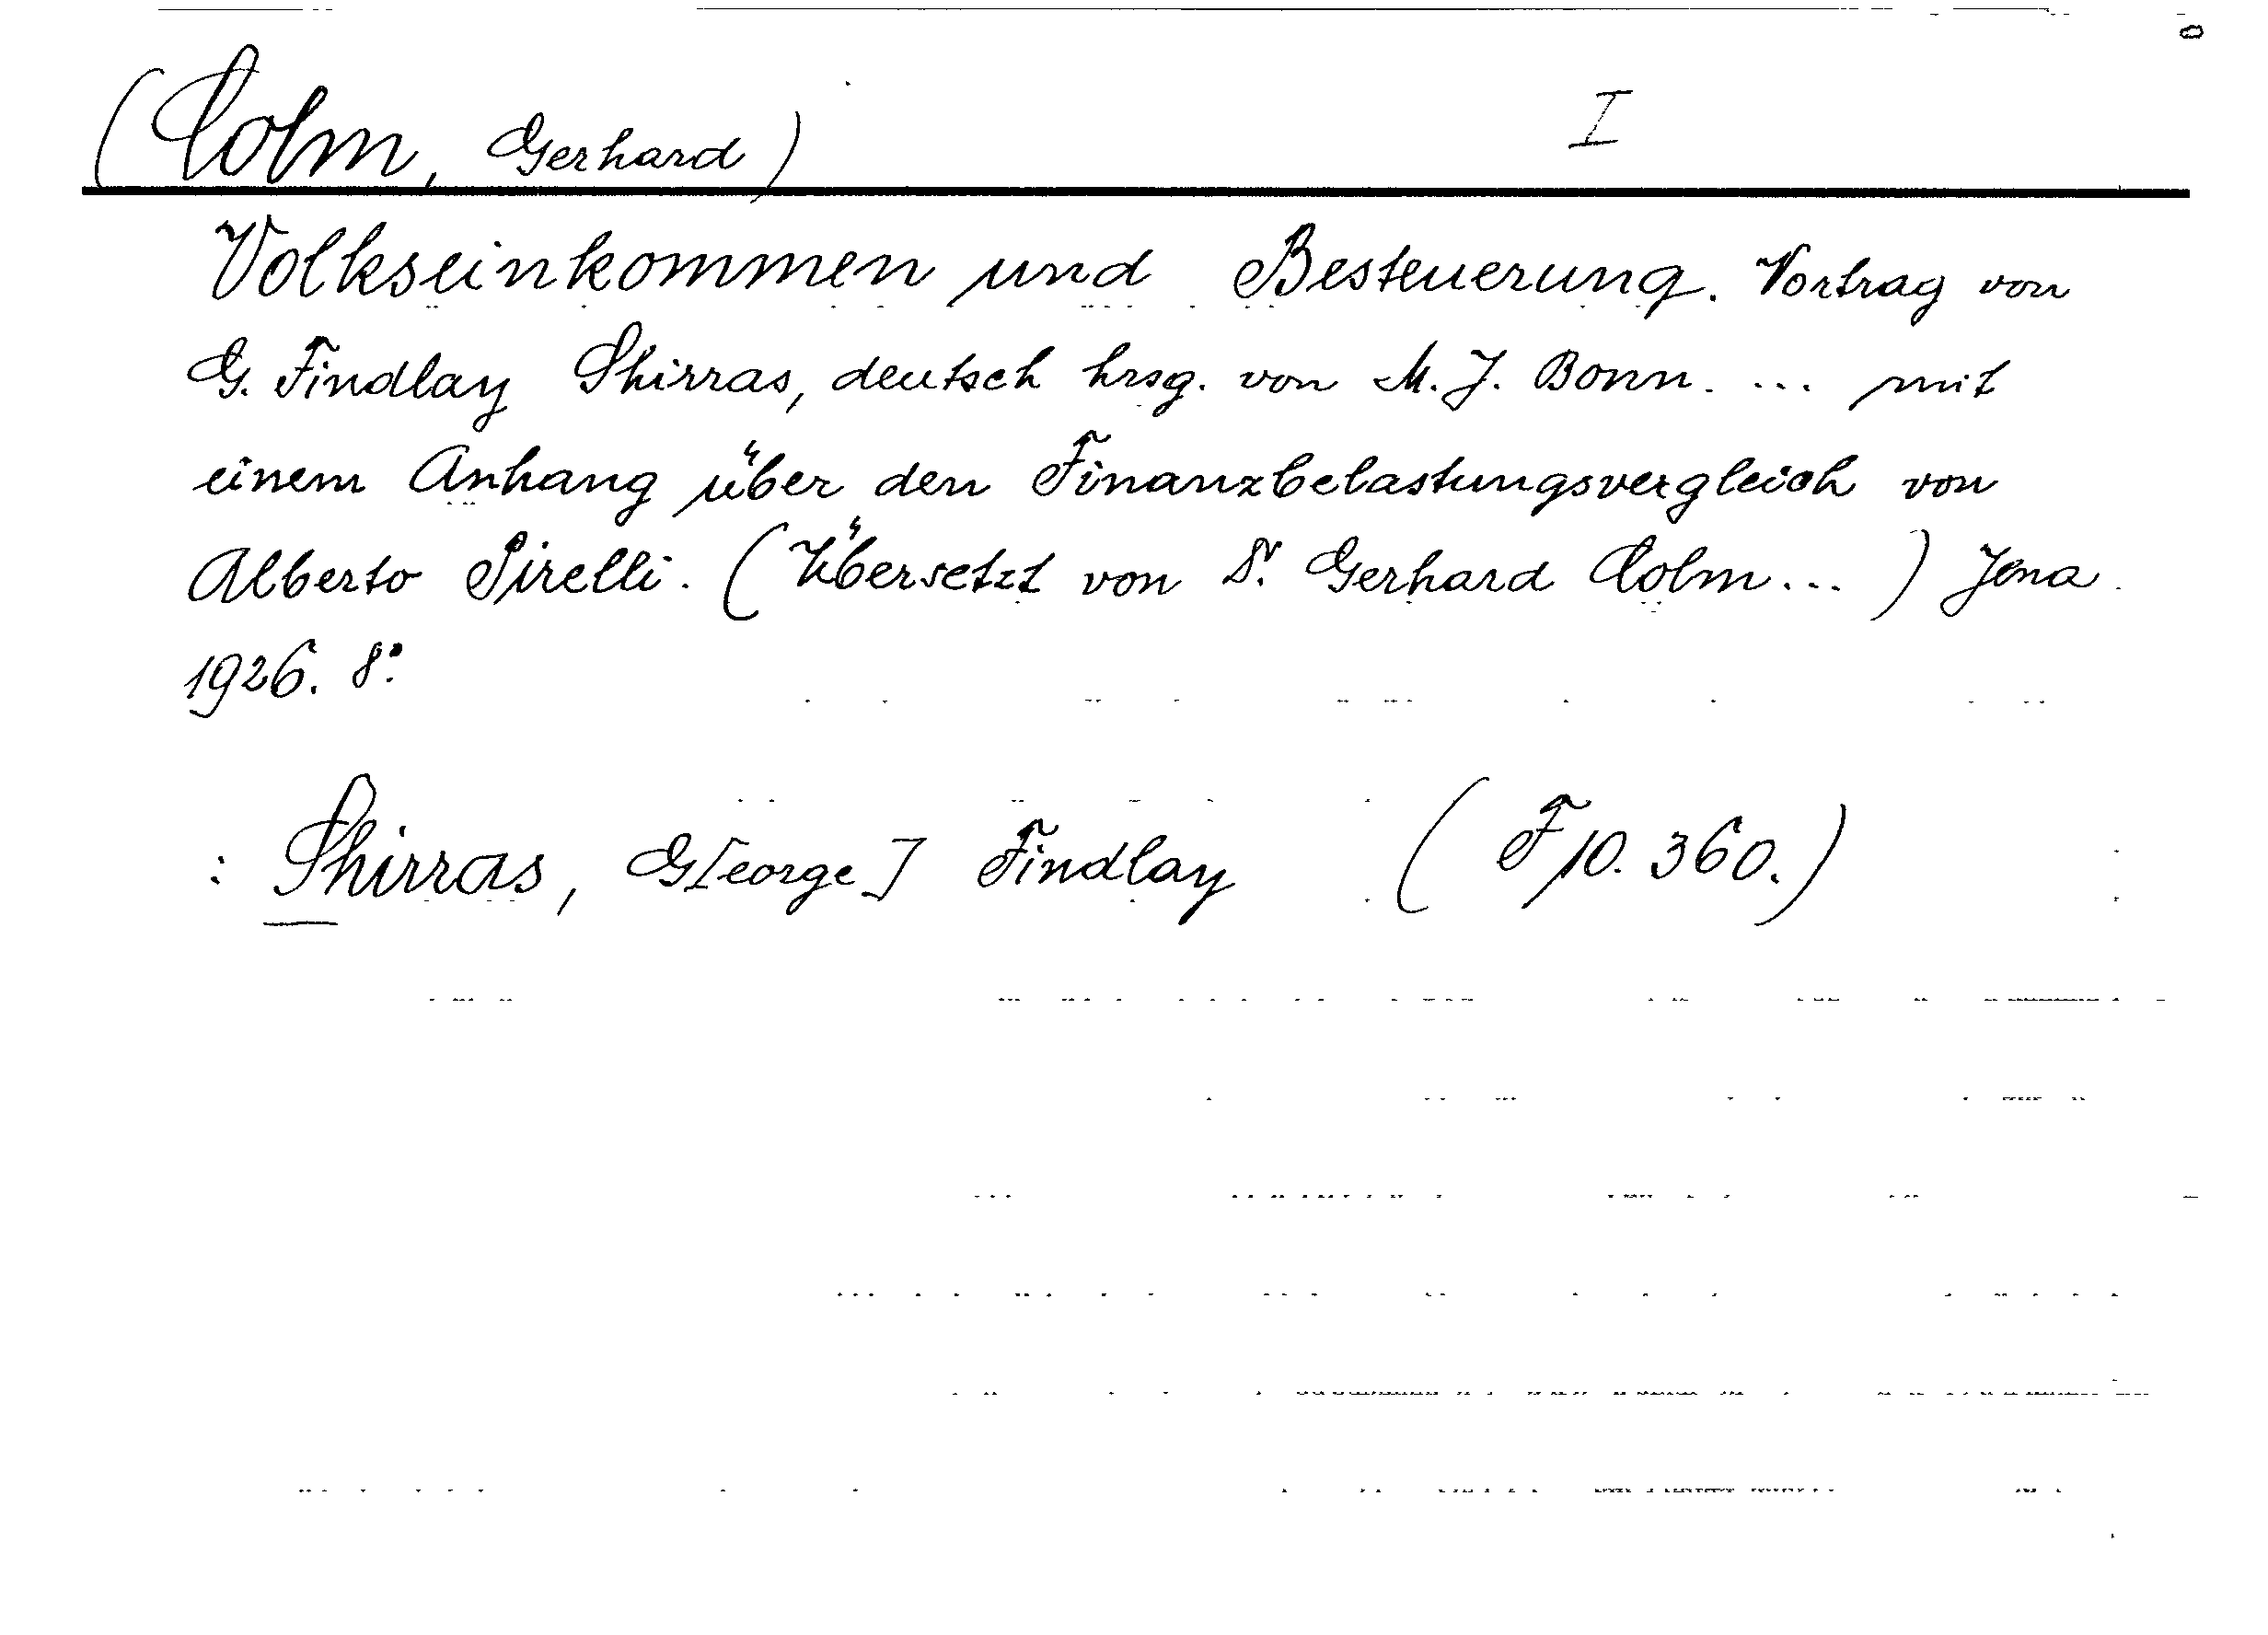 (Colm, Gerhard) I
Volkseinkommen und Besteuerung. Vortrag von
G. Findlay Shirras, deutsch hrsg. von M. J. Bonn. ... mit
einem Anhang über den Finanzbelastungsvergleich von
Alberto Pirelli. (Übersetzt von Dr. Gerhard Colm...) Jena
1926. 8°.
: Shirras, G[eorge] Findlay (F 10. 360.)